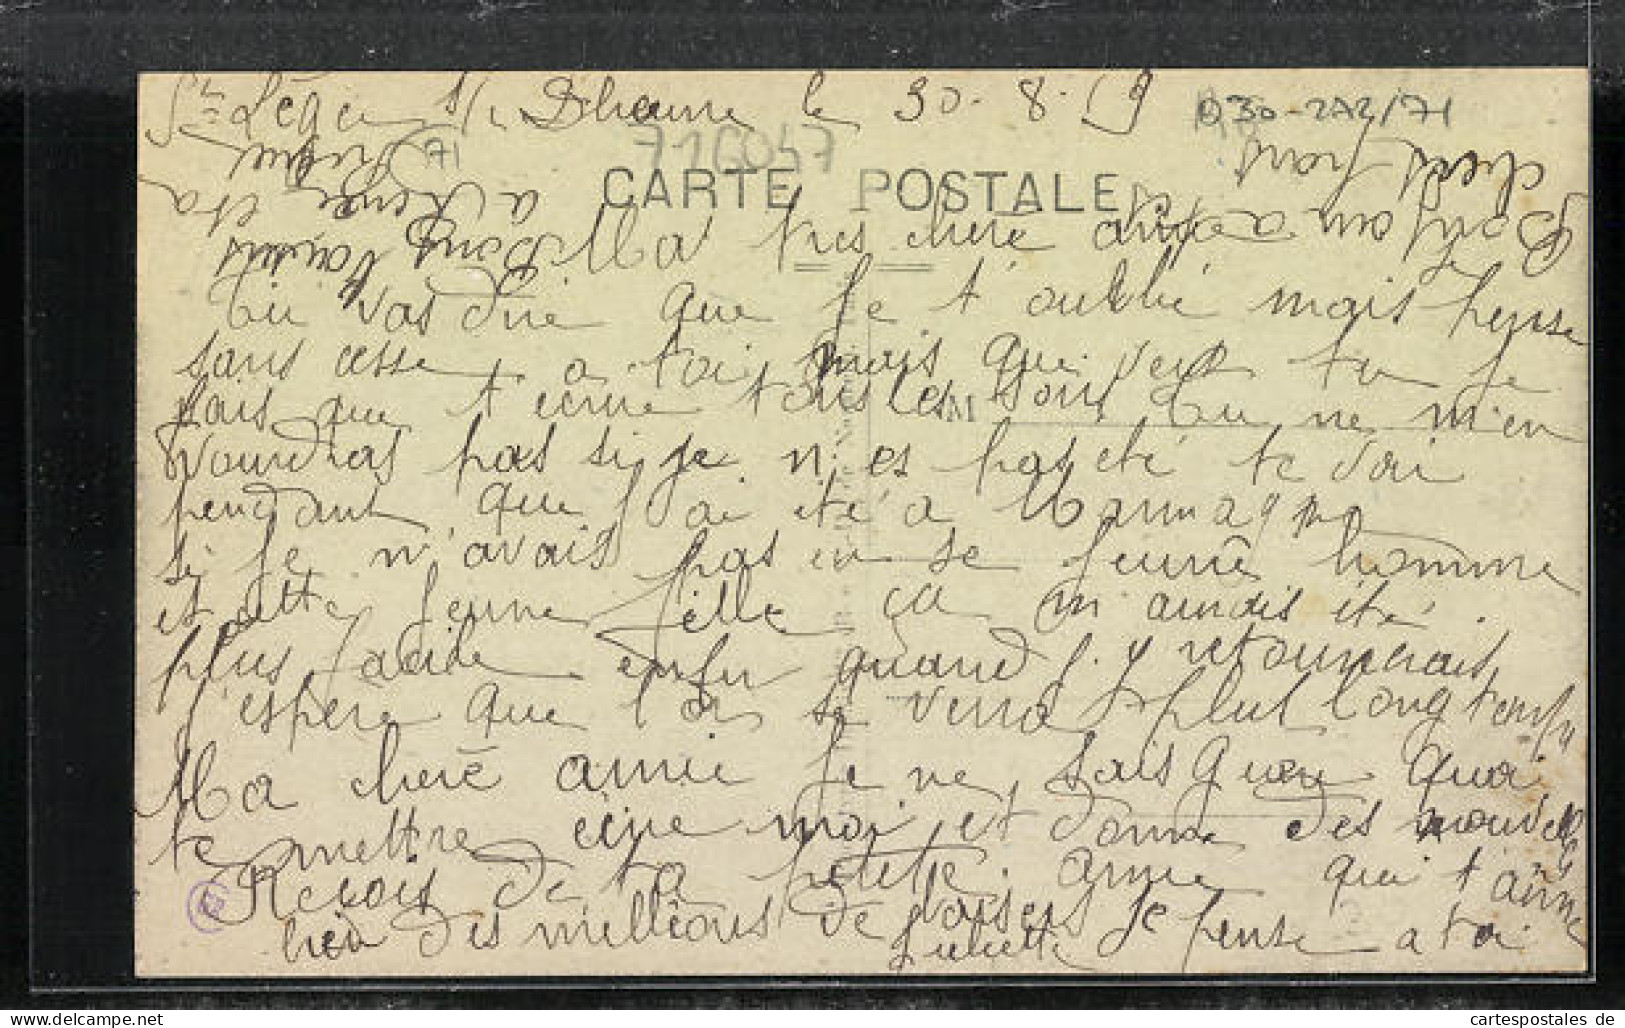 St Léger s/ Dheune le 30-8-19
030-2A2/71
71
716047
CARTE POSTALE
Ma très chère amie
Tu vas dire que je t'oublié mais pense
sans cesse a toi mais que veux tu je
fais que t'ecrire tous les soir tu ne m'en
voudras pas si je n'es pas été te voir
pendant que j'ai été a Marmagne
si je n'avais pas eu se jeune homme
et cette jeune fille ça m'aurais été
plus facile enfin quand j'y retournerais
j'espère que l'on se verra plus longtemps
Ma chère amie je ne sais guere quoi
te mettre ecire moi et donne des nouvelles
Recois de ta petite amie qui t'aime
bien des millions de baisers je pense a toi
Juliette
Bonjour a tes
chers parents
Bons baisers
a Renée et a